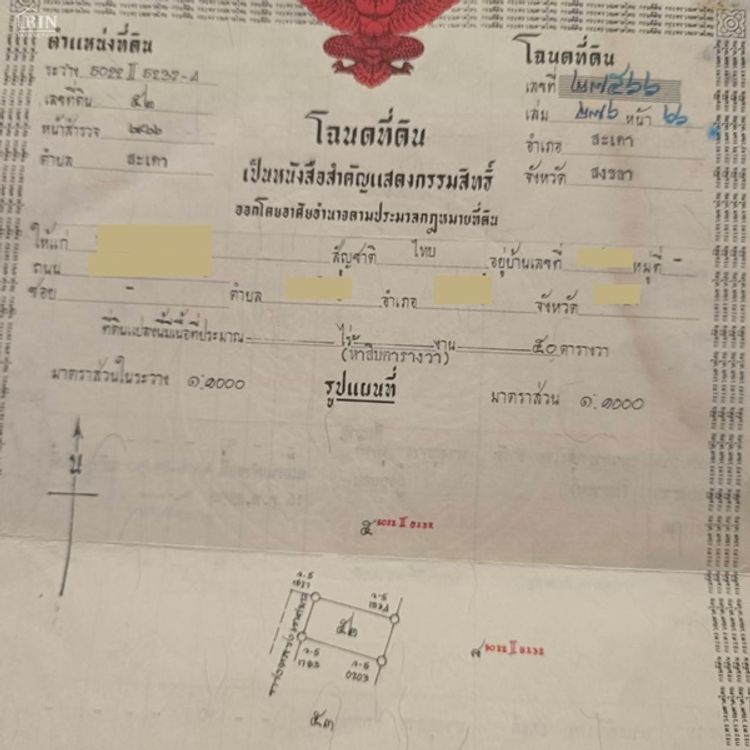 ตำแหน่งที่ดิน
ระวาง 5022 II 5232-A
เลขที่ดิน ๕๒
หน้าสำรวจ ๒๙๖๖
ตำบล สะเดา
โฉนดที่ดิน
เลขที่ ๒๗๕๖๖
เล่ม ๒๗๖ หน้า ๖๖
อำเภอ สะเดา
จังหวัด สงขลา
โฉนดที่ดิน
เป็นหนังสือสำคัญแสดงกรรมสิทธิ์
ออกโดยอาศัยอำนาจตามประมวลกฎหมายที่ดิน
ให้แก่ สัญชาติ ไทย อยู่บ้านเลขที่ หมู่ที่ -
ถนน
ซอย - ตำบล อำเภอ จังหวัด
ที่ดินแปลงนี้มีเนื้อที่ประมาณ ไร่ งาน ๕๐ ตารางวา
(ห้าสิบตารางวา)
มาตราส่วนในระวาง ๑:๑๐๐๐ รูปแผนที่ มาตราส่วน ๑:๑๐๐๐
น
๕ 5022 II 5232
๕๒
5022 II 5232
๕๓